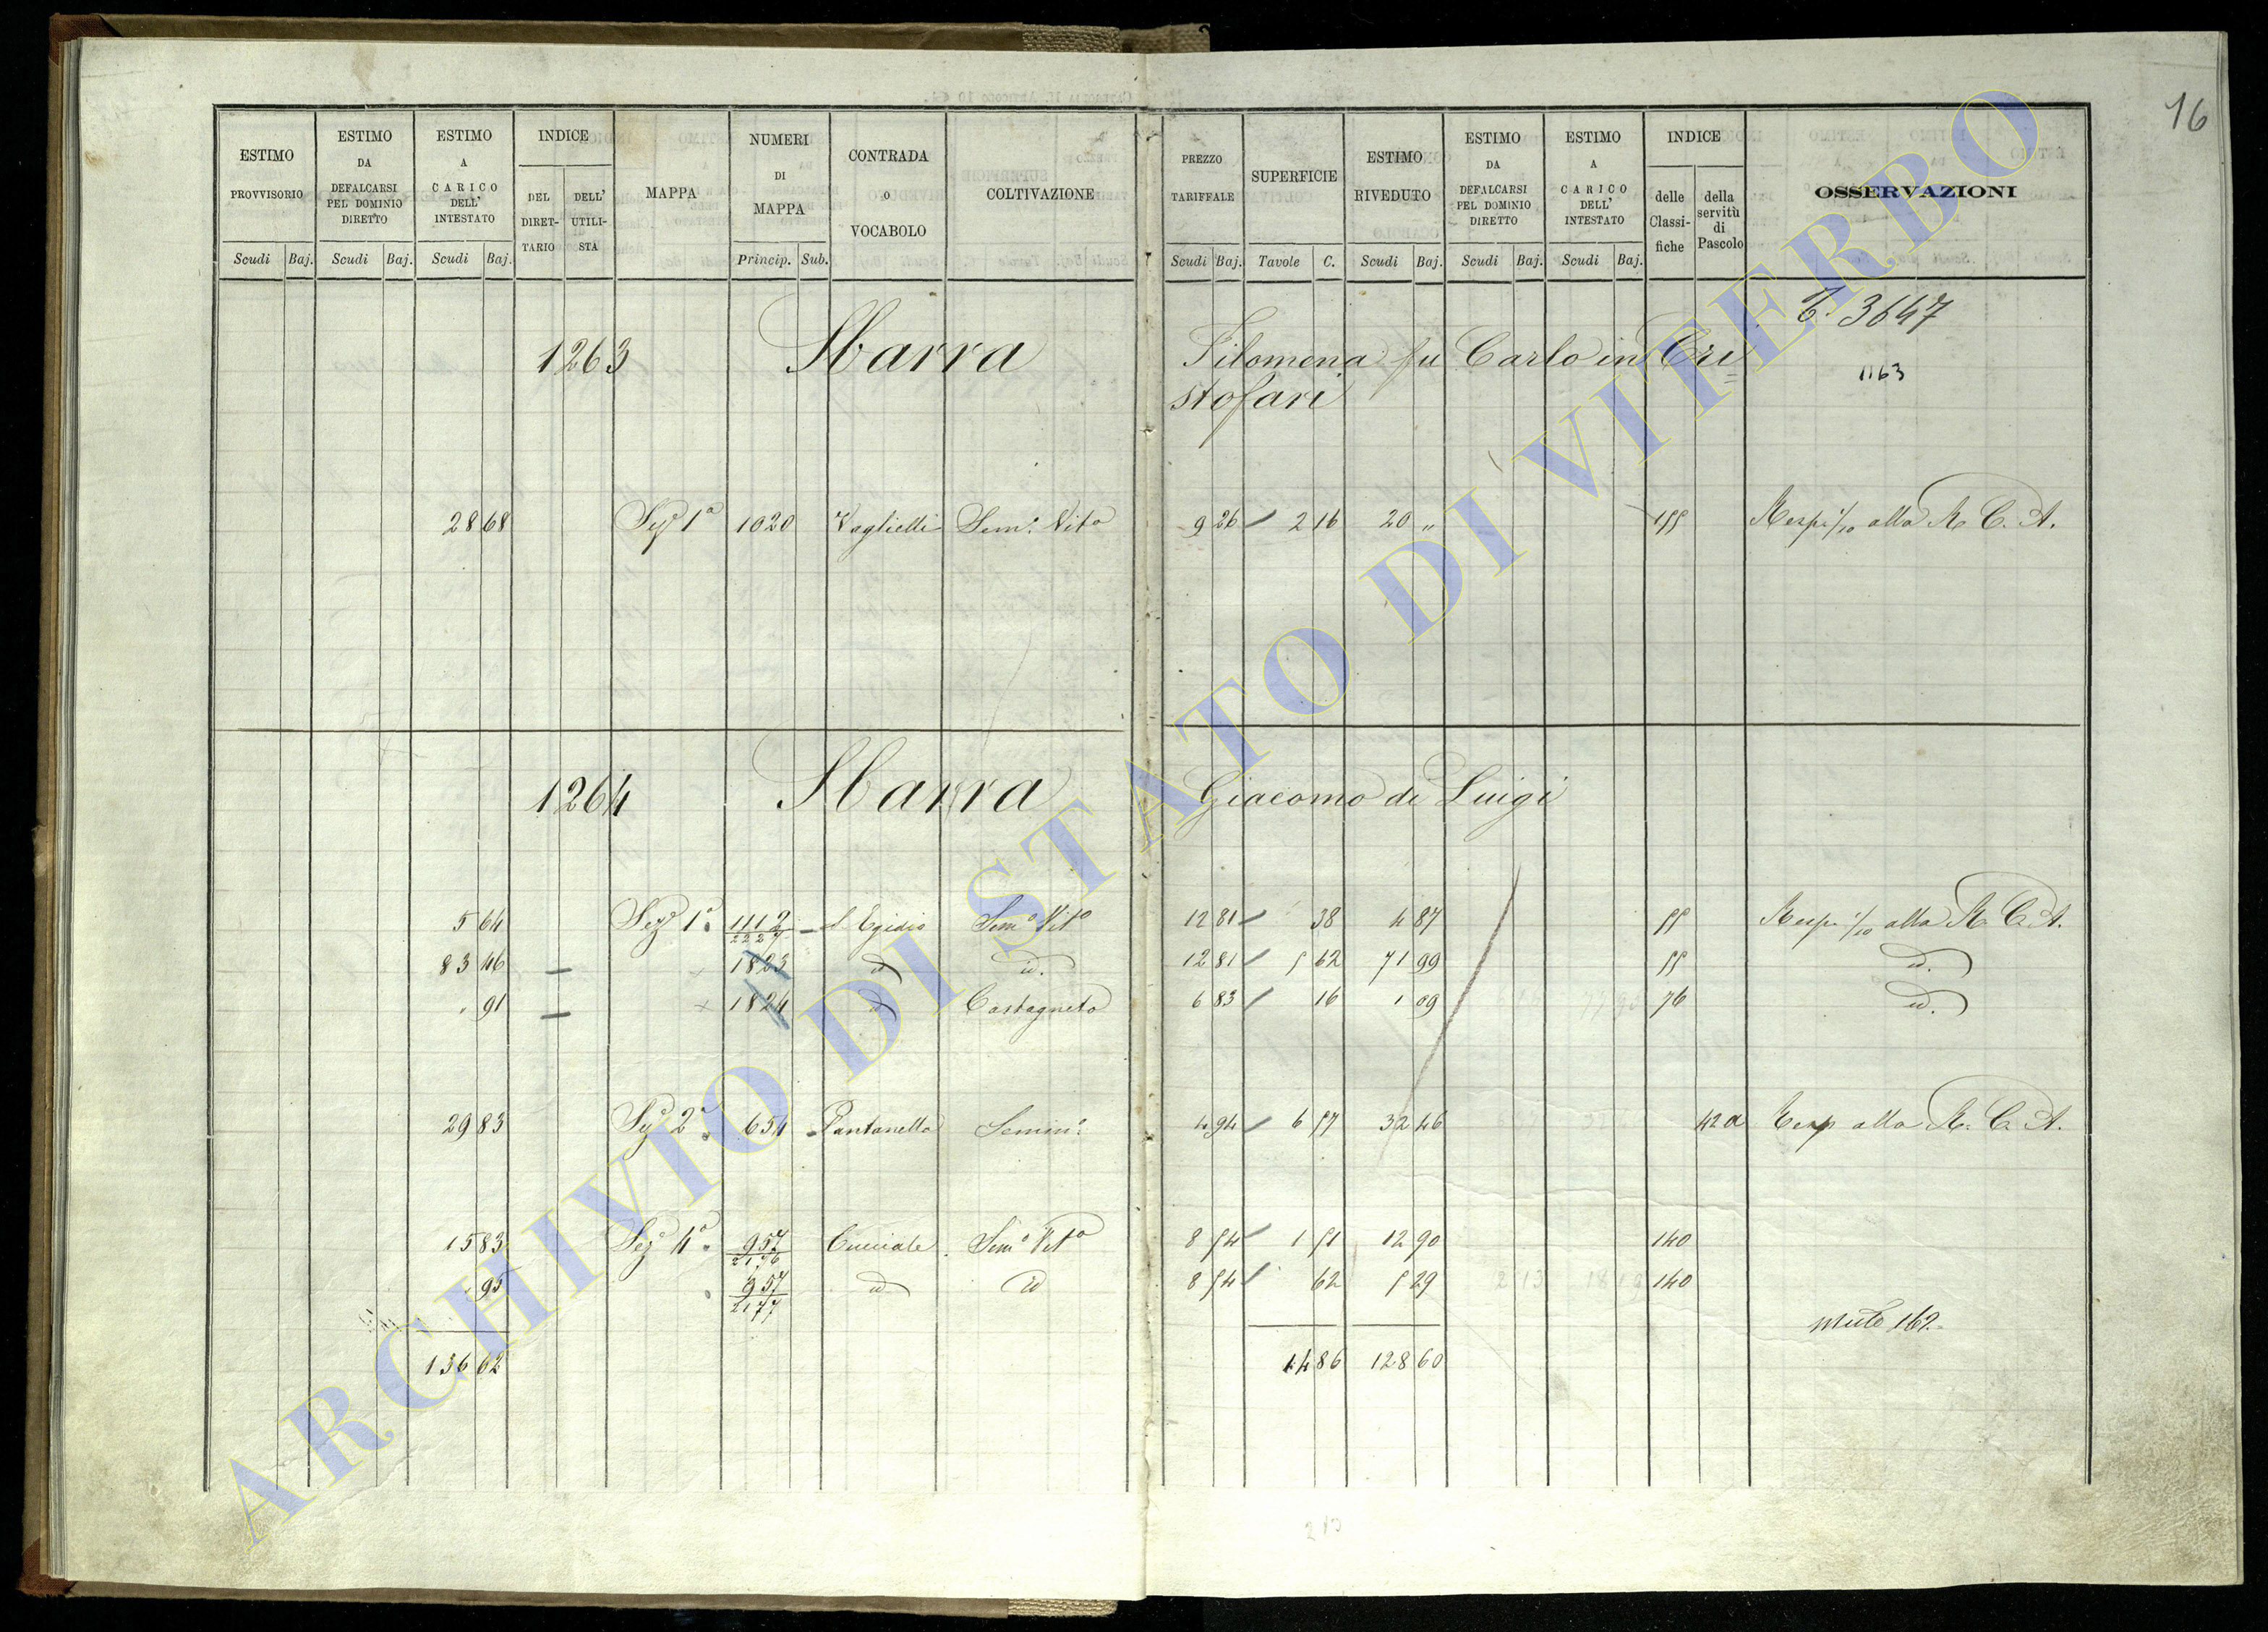 16
ESTIMO PROVVISORIO
ESTIMO DA DEFALCARSI PEL DOMINIO DIRETTO
ESTIMO A CARICO DELL' INTESTATO
INDICE
DEL DIRETTARIO
DELL' UTILISTA
MAPPA
NUMERI DI MAPPA
CONTRADA o VOCABOLO
COLTIVAZIONE
PREZZO TARIFFALE
SUPERFICIE
ESTIMO RIVEDUTO
ESTIMO DA DEFALCARSI PEL DOMINIO DIRETTO
ESTIMO A CARICO DELL' INTESTATO
INDICE
delle Classifiche
della servitù di Pascolo
OSSERVAZIONI
Scudi Baj. Scudi Baj. Scudi Baj. Princip. Sub. Scudi Baj. Tavole C. Scudi Baj. Scudi Baj. Scudi Baj.
3647
1263 Sbarra Filomena fu Carlo in Cri=
1163
stofari
28 68 Sez.e 1a 1020 Vaglielli Sem.o Vit.o 9 26 2 16 20 „ alla R. C. A.
1264 Sbarra Giacomo di Luigi
5 64 Sez.e 1a 1112/2227 S. Egidio Sem.o Vit.o 12 81 38 4 87 55 alla R. C. A.
83 46 1823 id id. 12 81 5 62 71 99 55 id.
91 1824 id Castagneto 6 83 16 1 09 76 id.
29 83 Sez.e 2a 654 Pantanella Semin.o 4 94 6 57 32 46 42a Resp alla R. C. A.
15 83 Sez.e 4a 957/2176 Cucciale Sem.o Vit.o 8 54 1 51 12 90 140
95 957/2177 id id 8 54 62 5 29 140
136 62 14 86 128 60
ARCHIVIO DI STATO DI VITERBO